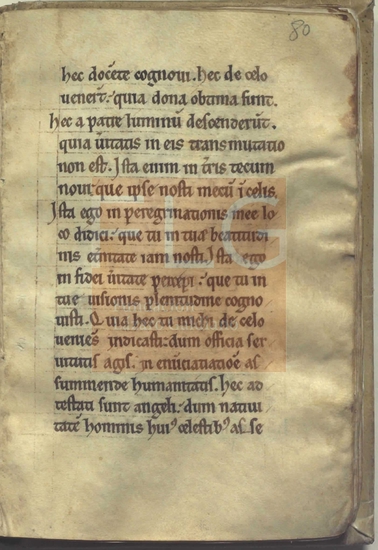 80
hec docēte cognovi. hec de celo
venerūt. quia dona obtima sunt.
hec a patre luminū descenderūt.
quia ūitatis in eis transmutatio
non est. Ista enim in tris tecum
novi. que ipse nosti mecū ī celis.
Ista ego in peregrinationis mee lo
co didici. que tu in tua beatitudi
nis et̄nitate iam nosti. Ista ego
in fidei ūitate percepi. que tu in
tue visionis plenitudine cogno
visti. Quia hec tu michi de celo
veniēs indicasti. dum officia ser
vitutis agis. in enūciatiōe as
summende humanitatis. hec ad
testati sunt angeli. dum nativi
tatē hominis hui⁹ celestib⁹ as se